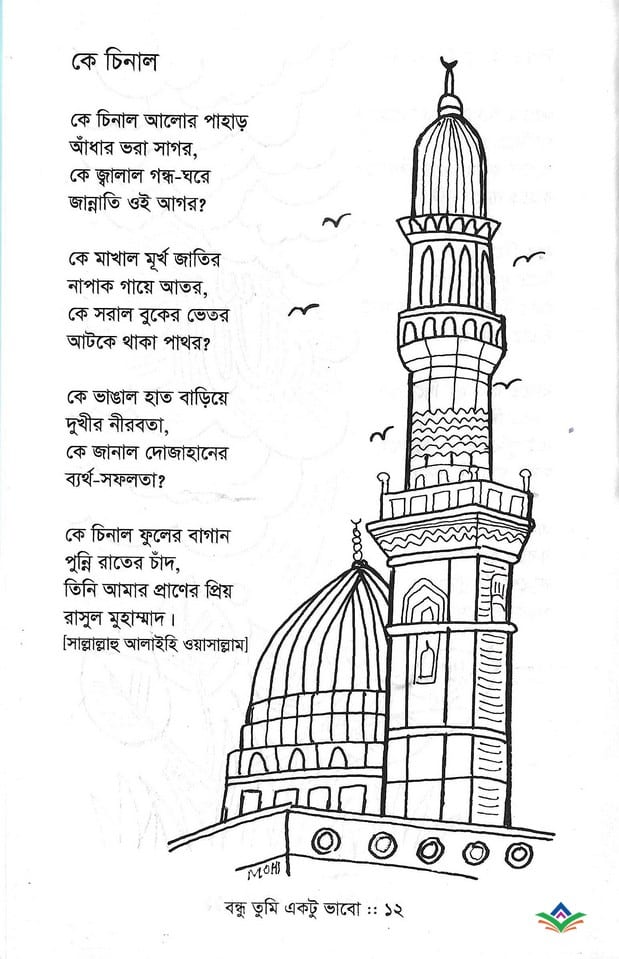 কে চিনাল
কে চিনাল আলোর পাহাড়
আঁধার ভরা সাগর,
কে জ্বালাল গন্ধ-ঘরে
জান্নাতি ওই আগর?
কে মাখাল মূর্খ জাতির
নাপাক গায়ে আতর,
কে সরাল বুকের ভেতর
আটকে থাকা পাথর?
কে ভাঙাল হাত বাড়িয়ে
দুখীর নীরবতা,
কে জানাল দোজাহানের
ব্যর্থ-সফলতা?
কে চিনাল ফুলের বাগান
পুন্নি রাতের চাঁদ,
তিনি আমার প্রাণের প্রিয়
রাসুল মুহাম্মাদ।
[সাল্লাল্লাহু আলাইহি ওয়াসাল্লাম]
MOHI
বন্ধু তুমি একটু ভাবো :: ১২